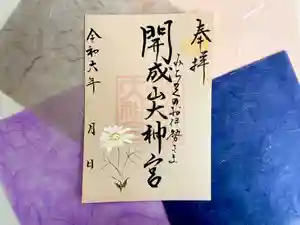 奉拝
みちのくの お伊勢さま
開成山大神宮
令和六年 月 日